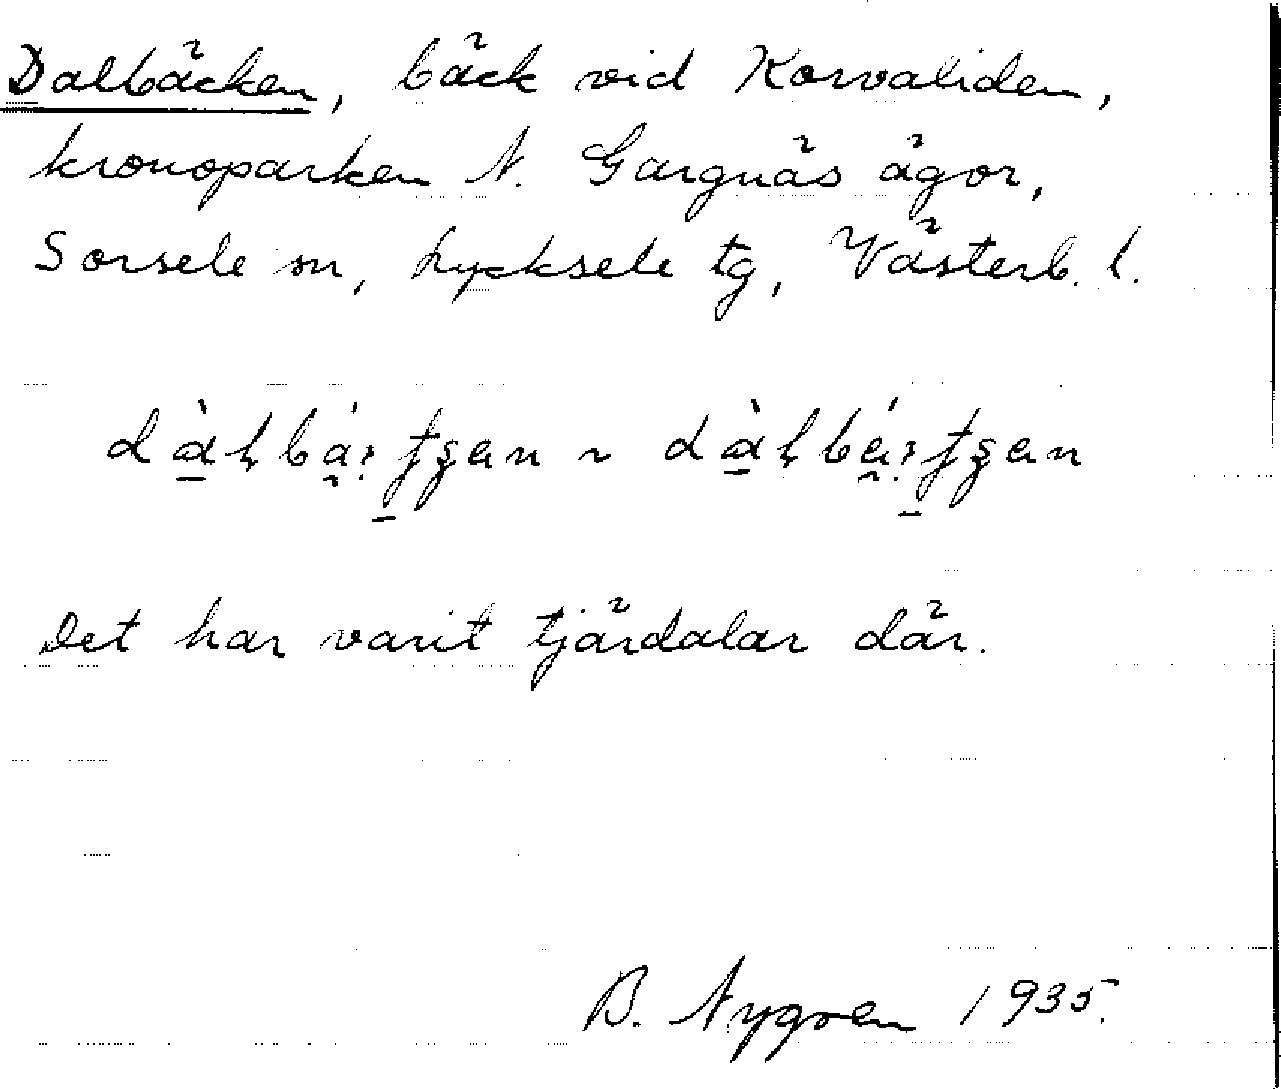 Dalbäcken, bäck vid Korvaliden,
kronoparken N. Gargnäs ägor,
Sorsele sn, Lycksele tg, Västerb. l.
Det har varit tjärdalar där.
B. Nygren 1935.